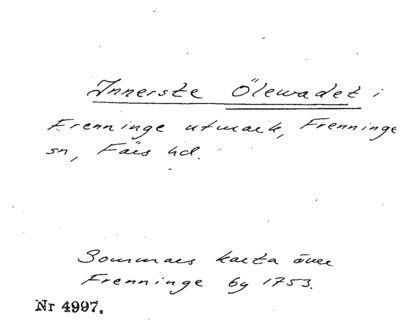 Innerste Ölewadet i
Frenninge utmark, Frenninge
sn, Färs hd.
Sommars karta över
Frenninge by 1753.
Nr 4997.